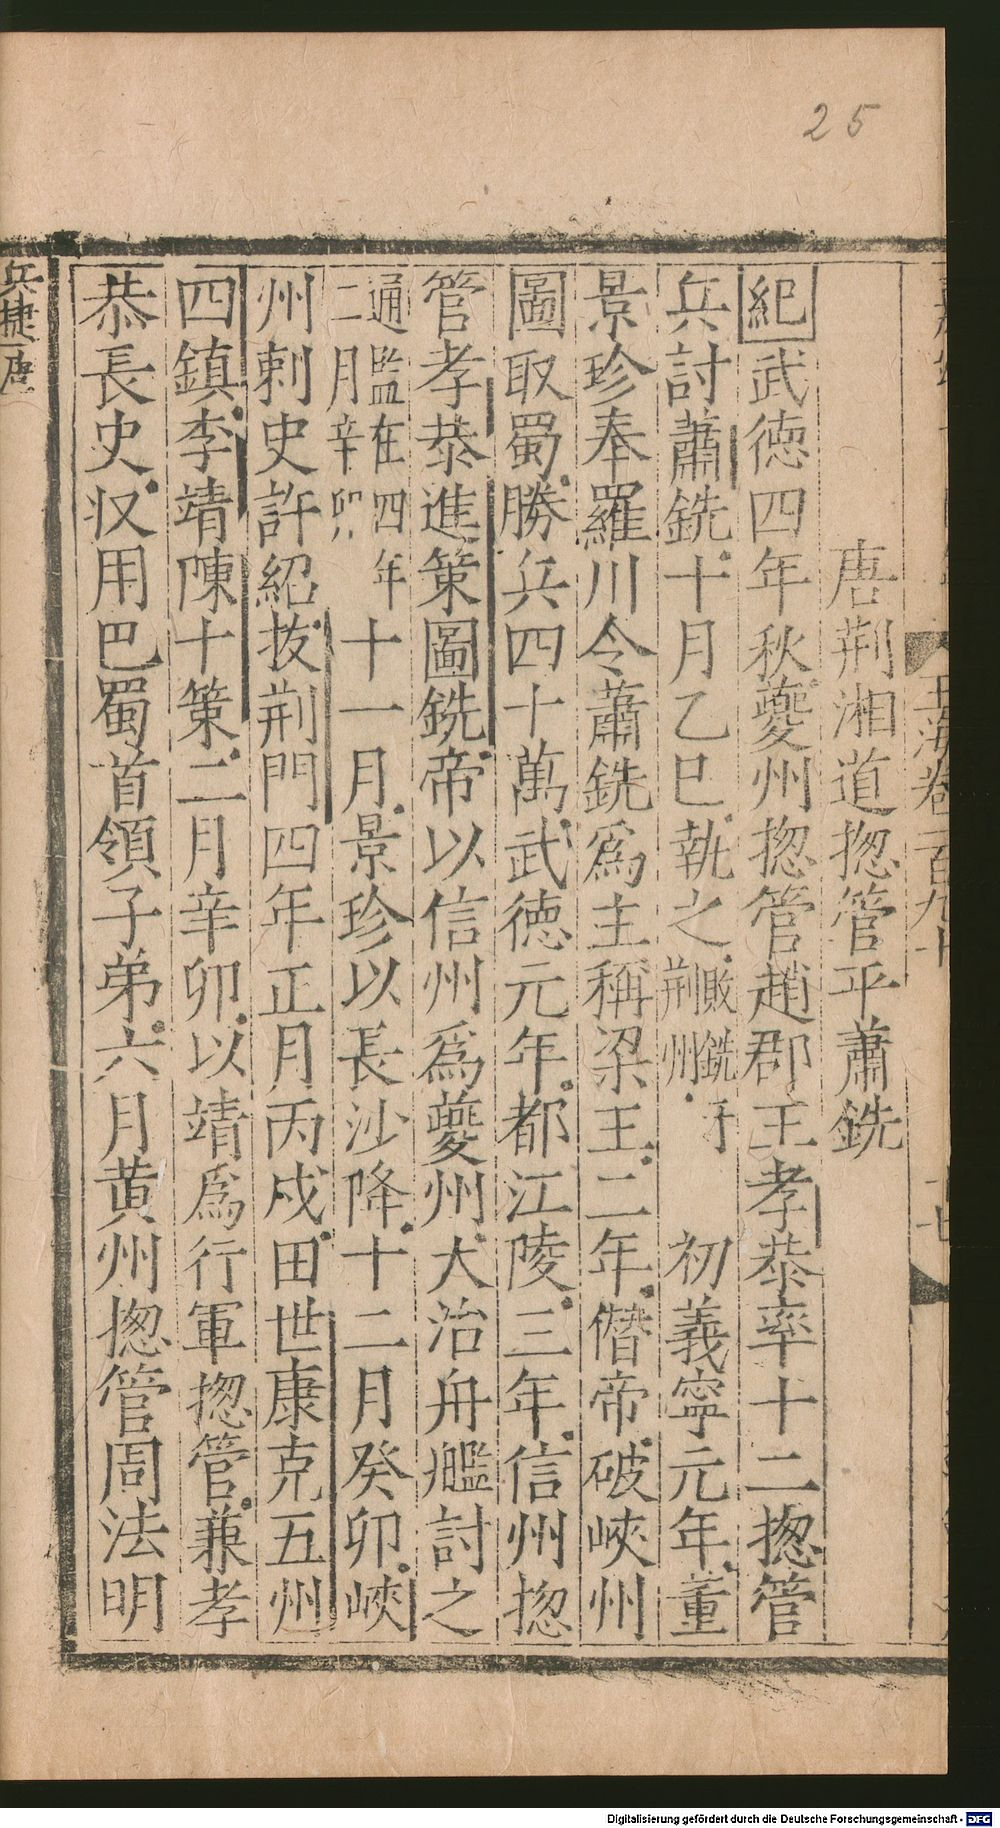 25
玉海卷一百九十
唐荆湘道揔管平蕭銑
紀武徳四年秋夔州揔管趙郡王孝恭率十二揔管
兵討蕭銑十月乙巳執之敗銑于荆州初義寧元年董
景珍奉羅川令蕭銑爲主稱梁王二年僭帝破峽州
圖取蜀勝兵四十萬武徳元年都江陵三年信州揔
管孝恭進策圖銑帝以信州爲夔州大治舟艦討之
通鑑在四年
二月辛卯十一月景珍以長沙降十二月癸卯峽
州刺史許紹抜荆門四年正月丙戌田世康克五州
四鎮李靖陳十策二月辛卯以靖爲行軍揔管兼孝
恭長史収用巴蜀首領子弟六月黄州揔管周法明
兵捷唐
Digitalisierung gefördert durch die Deutsche Forschungsgemeinschaft - DFG